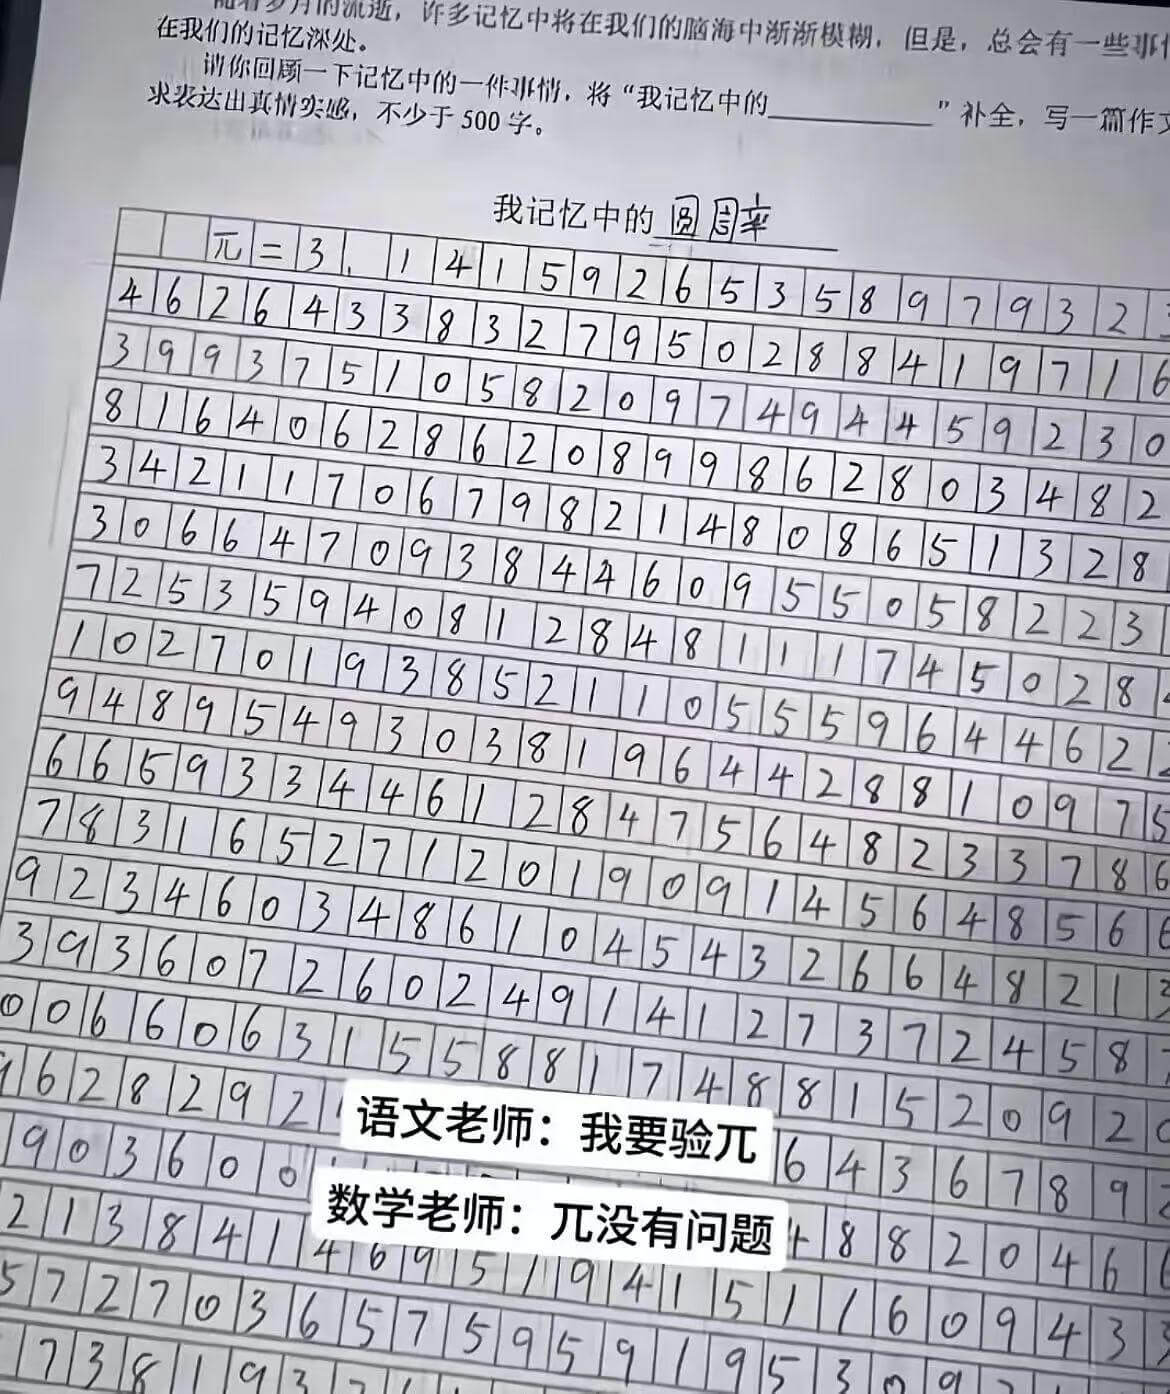 随着岁月的流逝，许多记忆中将在我们的脑海中渐渐模糊，但是，总会有一些事
在我们的记忆深处。
请你回顾一下记忆中的一件事情，将“我记忆中的____________”补全，写一篇作文
求表达出真情实感，不少于 500 字。
我记忆中的圆周率
兀=3.1415926535897932
4626433832795028841971 6
3993751058209749445923 0
8164062862089986280348 2
3421170679821480865132 8
30664709384460955058223
7253594081284811174502 8
1027019385211055596446 2 2
9489549303819644288109 7 5
6659334461284756482337 8 6
7831652712019091456485 6 6
9234603486104543266482 1 3
3936072602491412737245 8
0066063155881748815209 2 0
9628292
语文老师：我要验兀
903600
6436789
数学老师：兀没有问题
21384146951941511609433
8820466
572703657595919530921
73819326